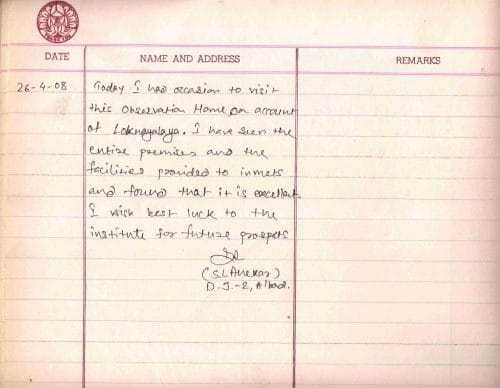 DATE
NAME AND ADDRESS
REMARKS
26-4-08
Today I had occasion to visit
this Observation Home on account
of Loknyalaya. I have seen the
entire premises and the
facilities provided to inmets
and found that it is excellent
I wish best luck to the
institute for future prospets
(S.L. Anekar)
D.J.-2, A'bad.